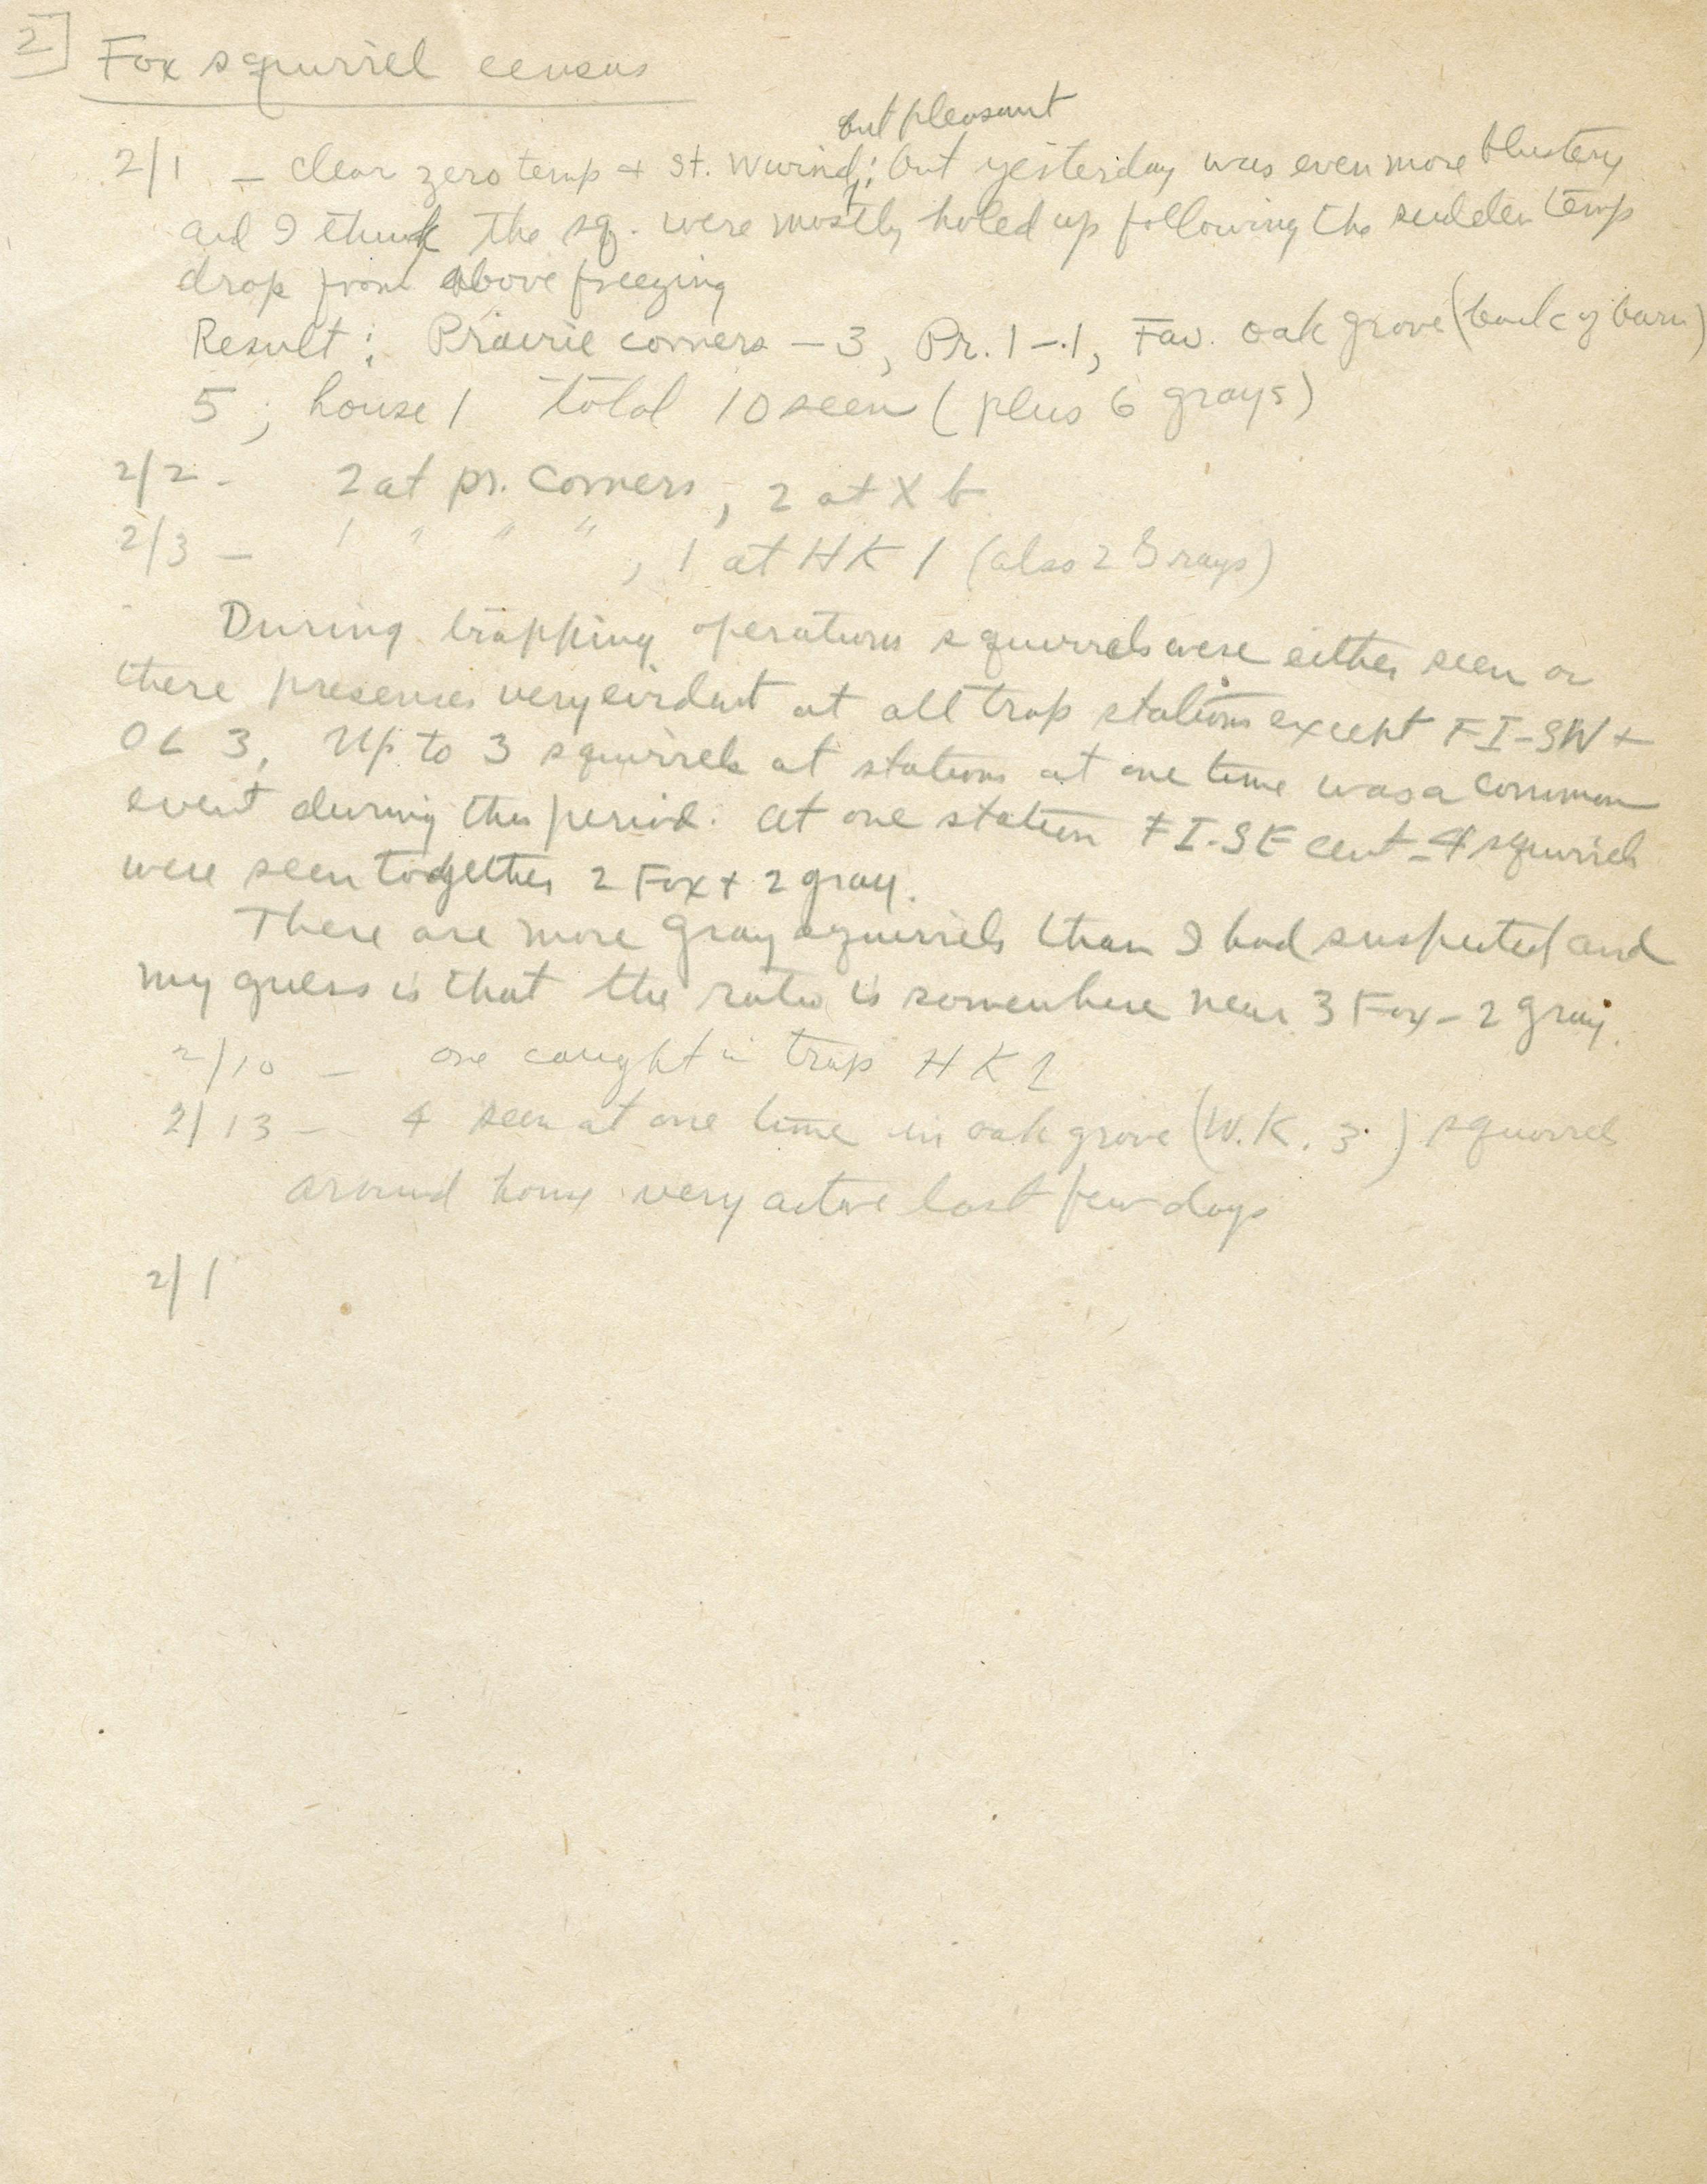 2
Fox squirrel census
but pleasant
2/1 – clear zero temp + st. W wind; but yesterday was even more blustery
and I think the sq. were mostly holed up following the sudden temp
drop from above freezing
Result: Prairie corners – 3, Pr. 1 – 1, Fav. oak grove (back of barn)
5; house 1 total 10 seen (plus 6 grays)
2/2 - 2 at pr. corners, 2 at X b
2/3 – 1 " " ", 1 at HK 1 (also 2 Grays)
During trapping operations squirrels were either seen or
there presences very evident at all trap stations except FI-SW +
OL 3. Up to 3 squirrels at stations at one time was a common
event during this period. At one station FI-SE cent – 4 squirrels
were seen together 2 Fox + 2 gray.
There are more gray squirrels than I had suspected and
my guess is that the ratio is somewhere near 3 Fox – 2 gray.
2/10 – one caught in trap HK 1
2/13 – 4 seen at one time in oak grove (W.K. 3.) squirrels
around home very active last few days
2/1